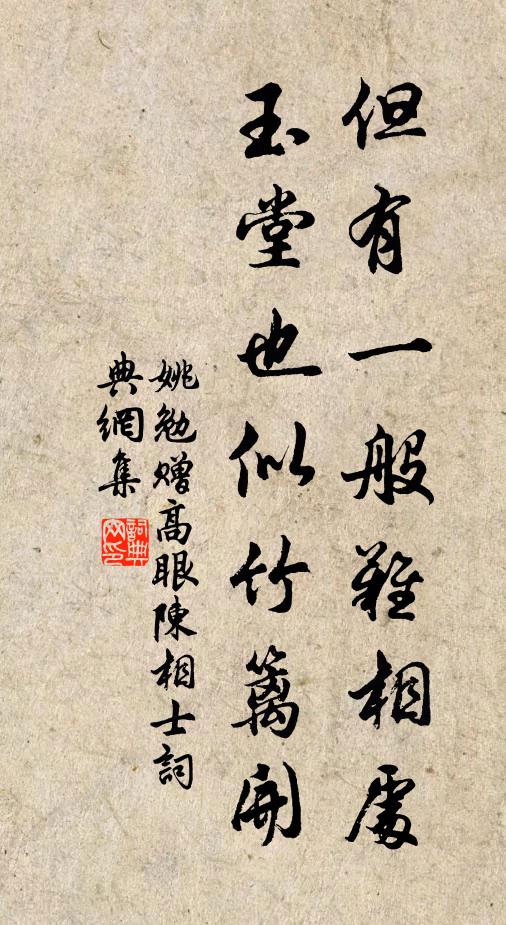 但有一般難相處
玉堂也似竹籬開
姚勉贈高眼陳相士詞
典網集
詞典網印